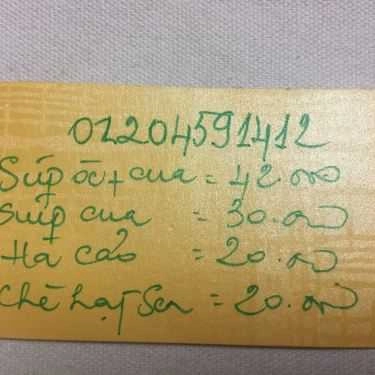 01204591412
Súp óc + cua = 42.000
Súp cua = 30.000
Há cảo = 20.000
Chè hạt Sen = 20.000